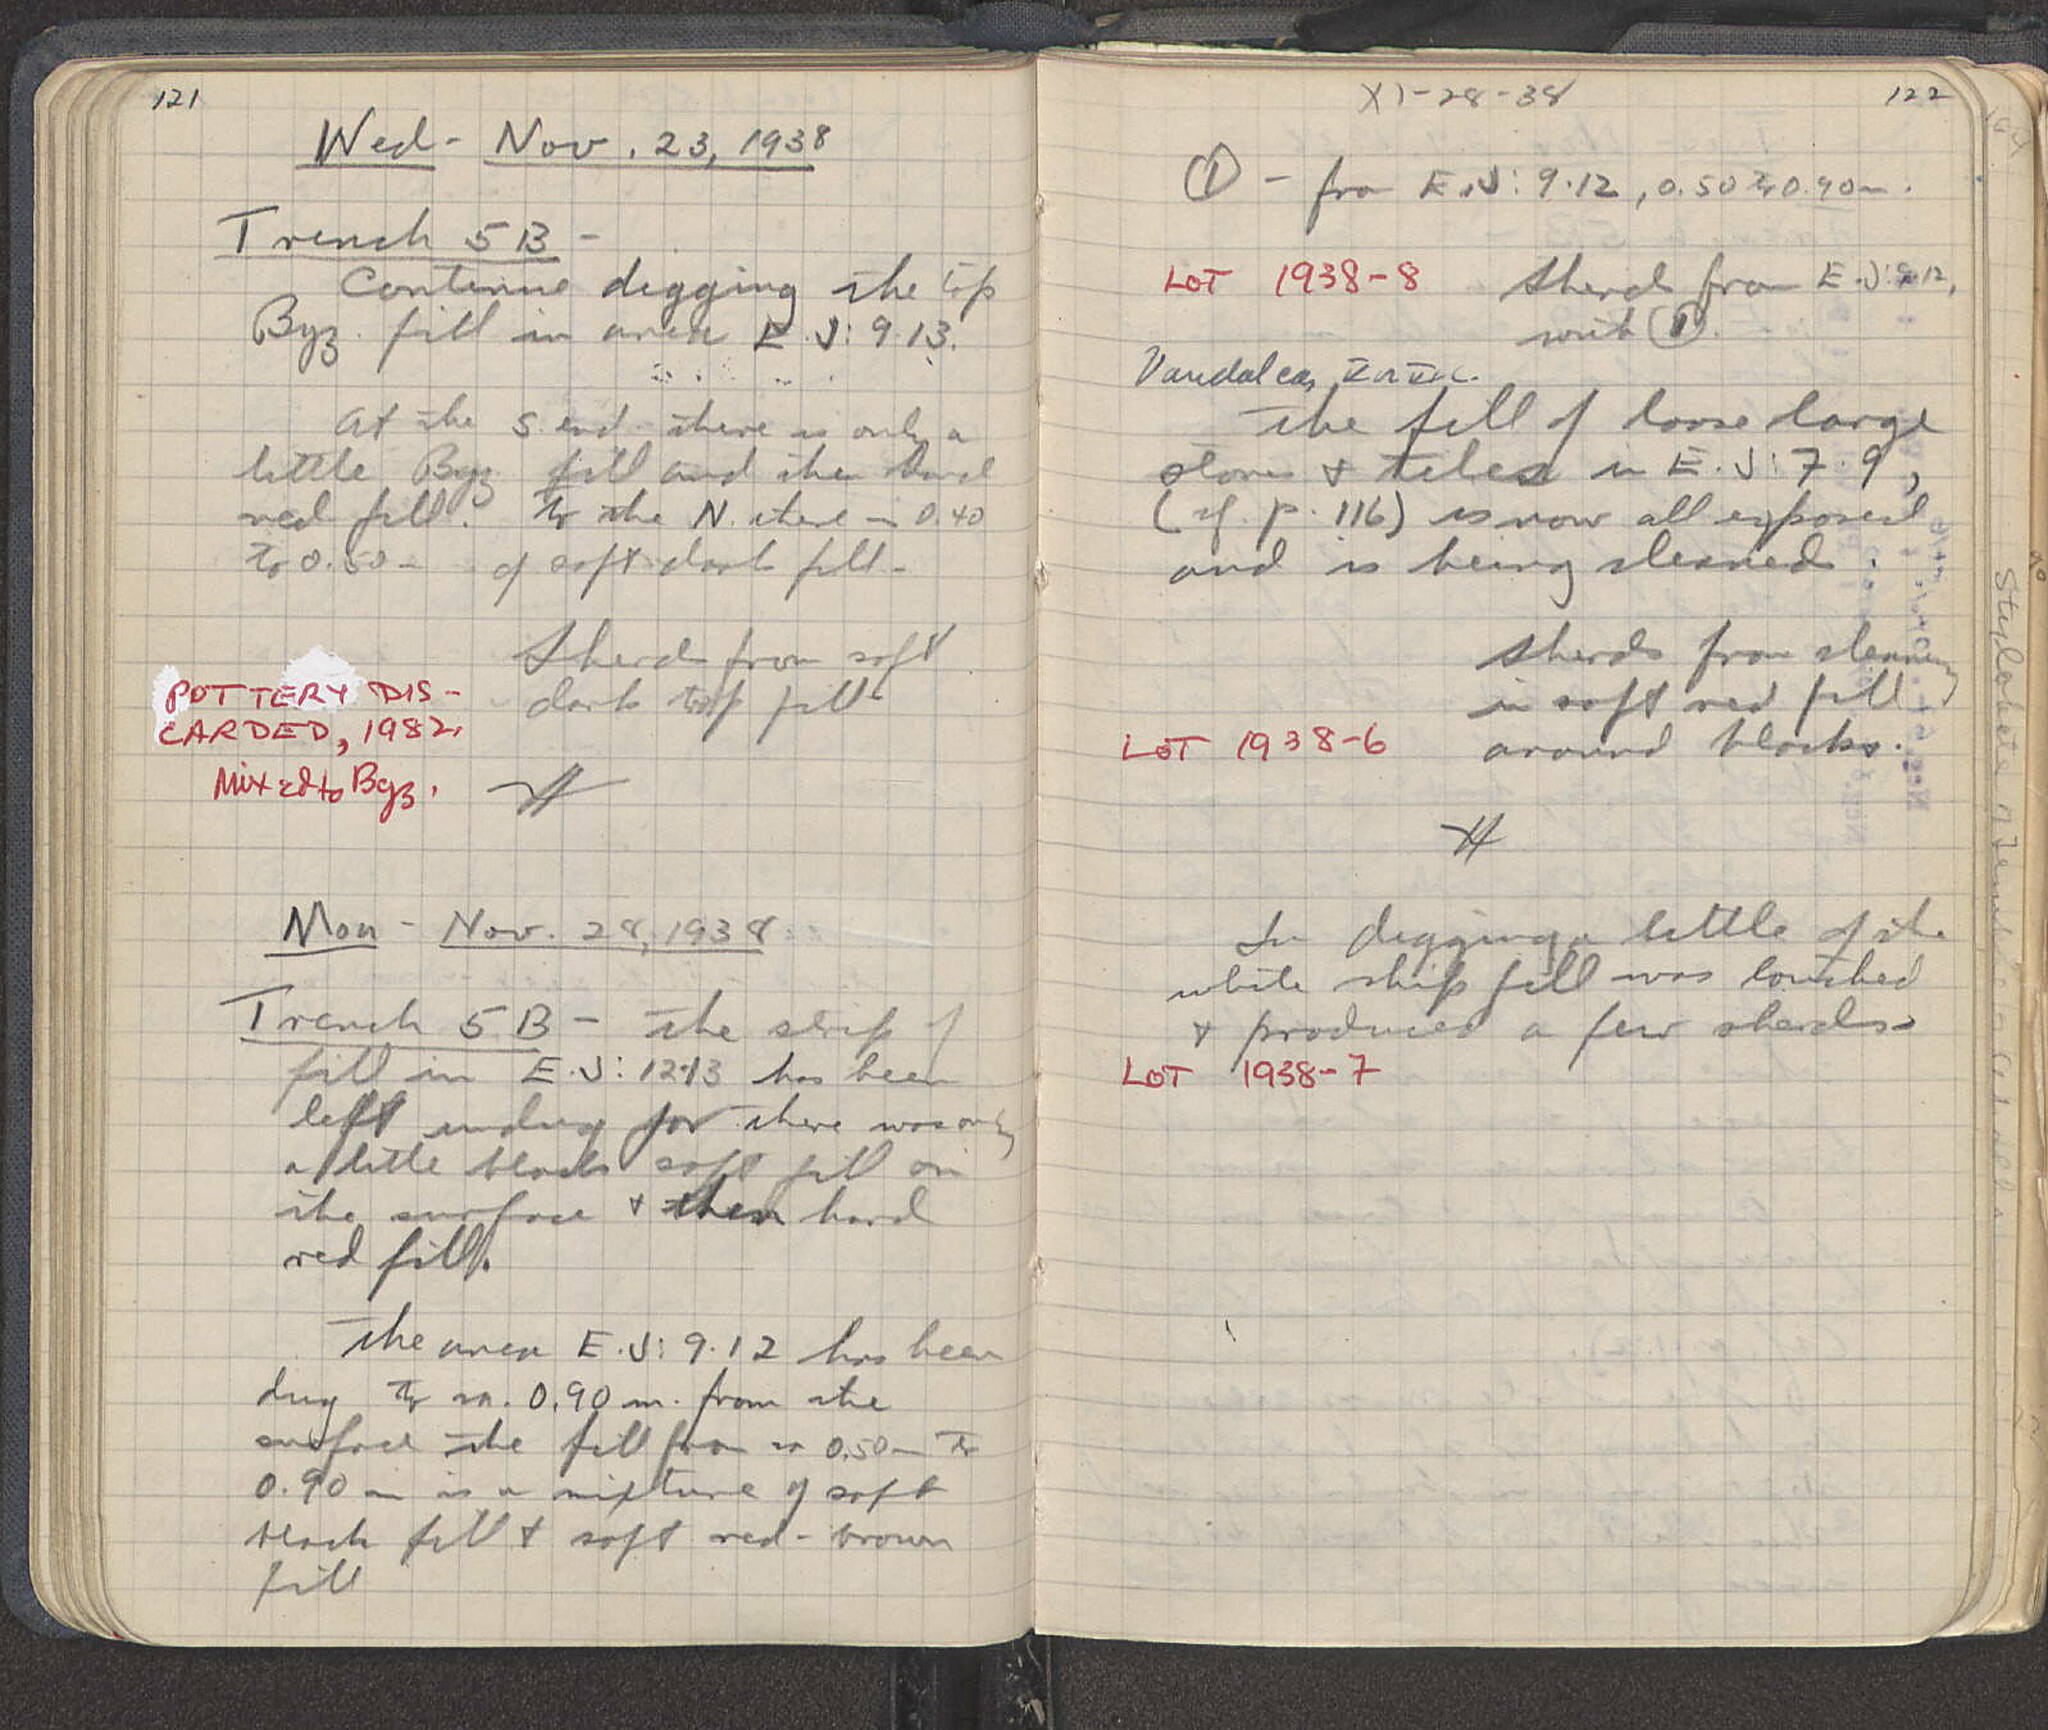 121
Wed - Nov. 23, 1938
Trench 5B -
Continue digging the top
Byz. fill in area E.J: 9.13.
At the S. end there is only a
little Byz fill and then hard
red fill. To the N. there is 0.40
to 0.50 m of soft dark fill.
Sherds from soft
dark top fill
POTTERY DIS-
CARDED, 1982.
Mixed to Byz.
Mon - Nov. 28, 1938
Trench 5B - The strip of
fill in E.J: 12.13 has been
left undug for there was only
a little black soft fill on
the surface + then hard
red fill.
The area E.J: 9.12 has been
dug to ca. 0.90 m. from the
surface the fill from ca 0.50 m to
0.90 m is a mixture of soft
black fill + soft red-brown
fill
XI-28-38
122
① - from E.J: 9.12, 0.50 to 0.90 m.
LOT 1938-8
Sherds from E.J: 9.12,
with ①.
Vandal coin,
The fill of loose large
stones + tiles in E.J: 7.9,
(cf. p. 116) is now all exposed
and is being cleaned.
Sherds from cleaning
in soft red fill
around blocks.
LOT 1938-6
In digging a little of the
white chip fill was touched
+ produced a few sherds.
LOT 1938-7